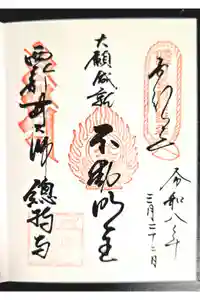 令和八年
三月二十二日
大願成就
不動明王
西新井大師 總持寺